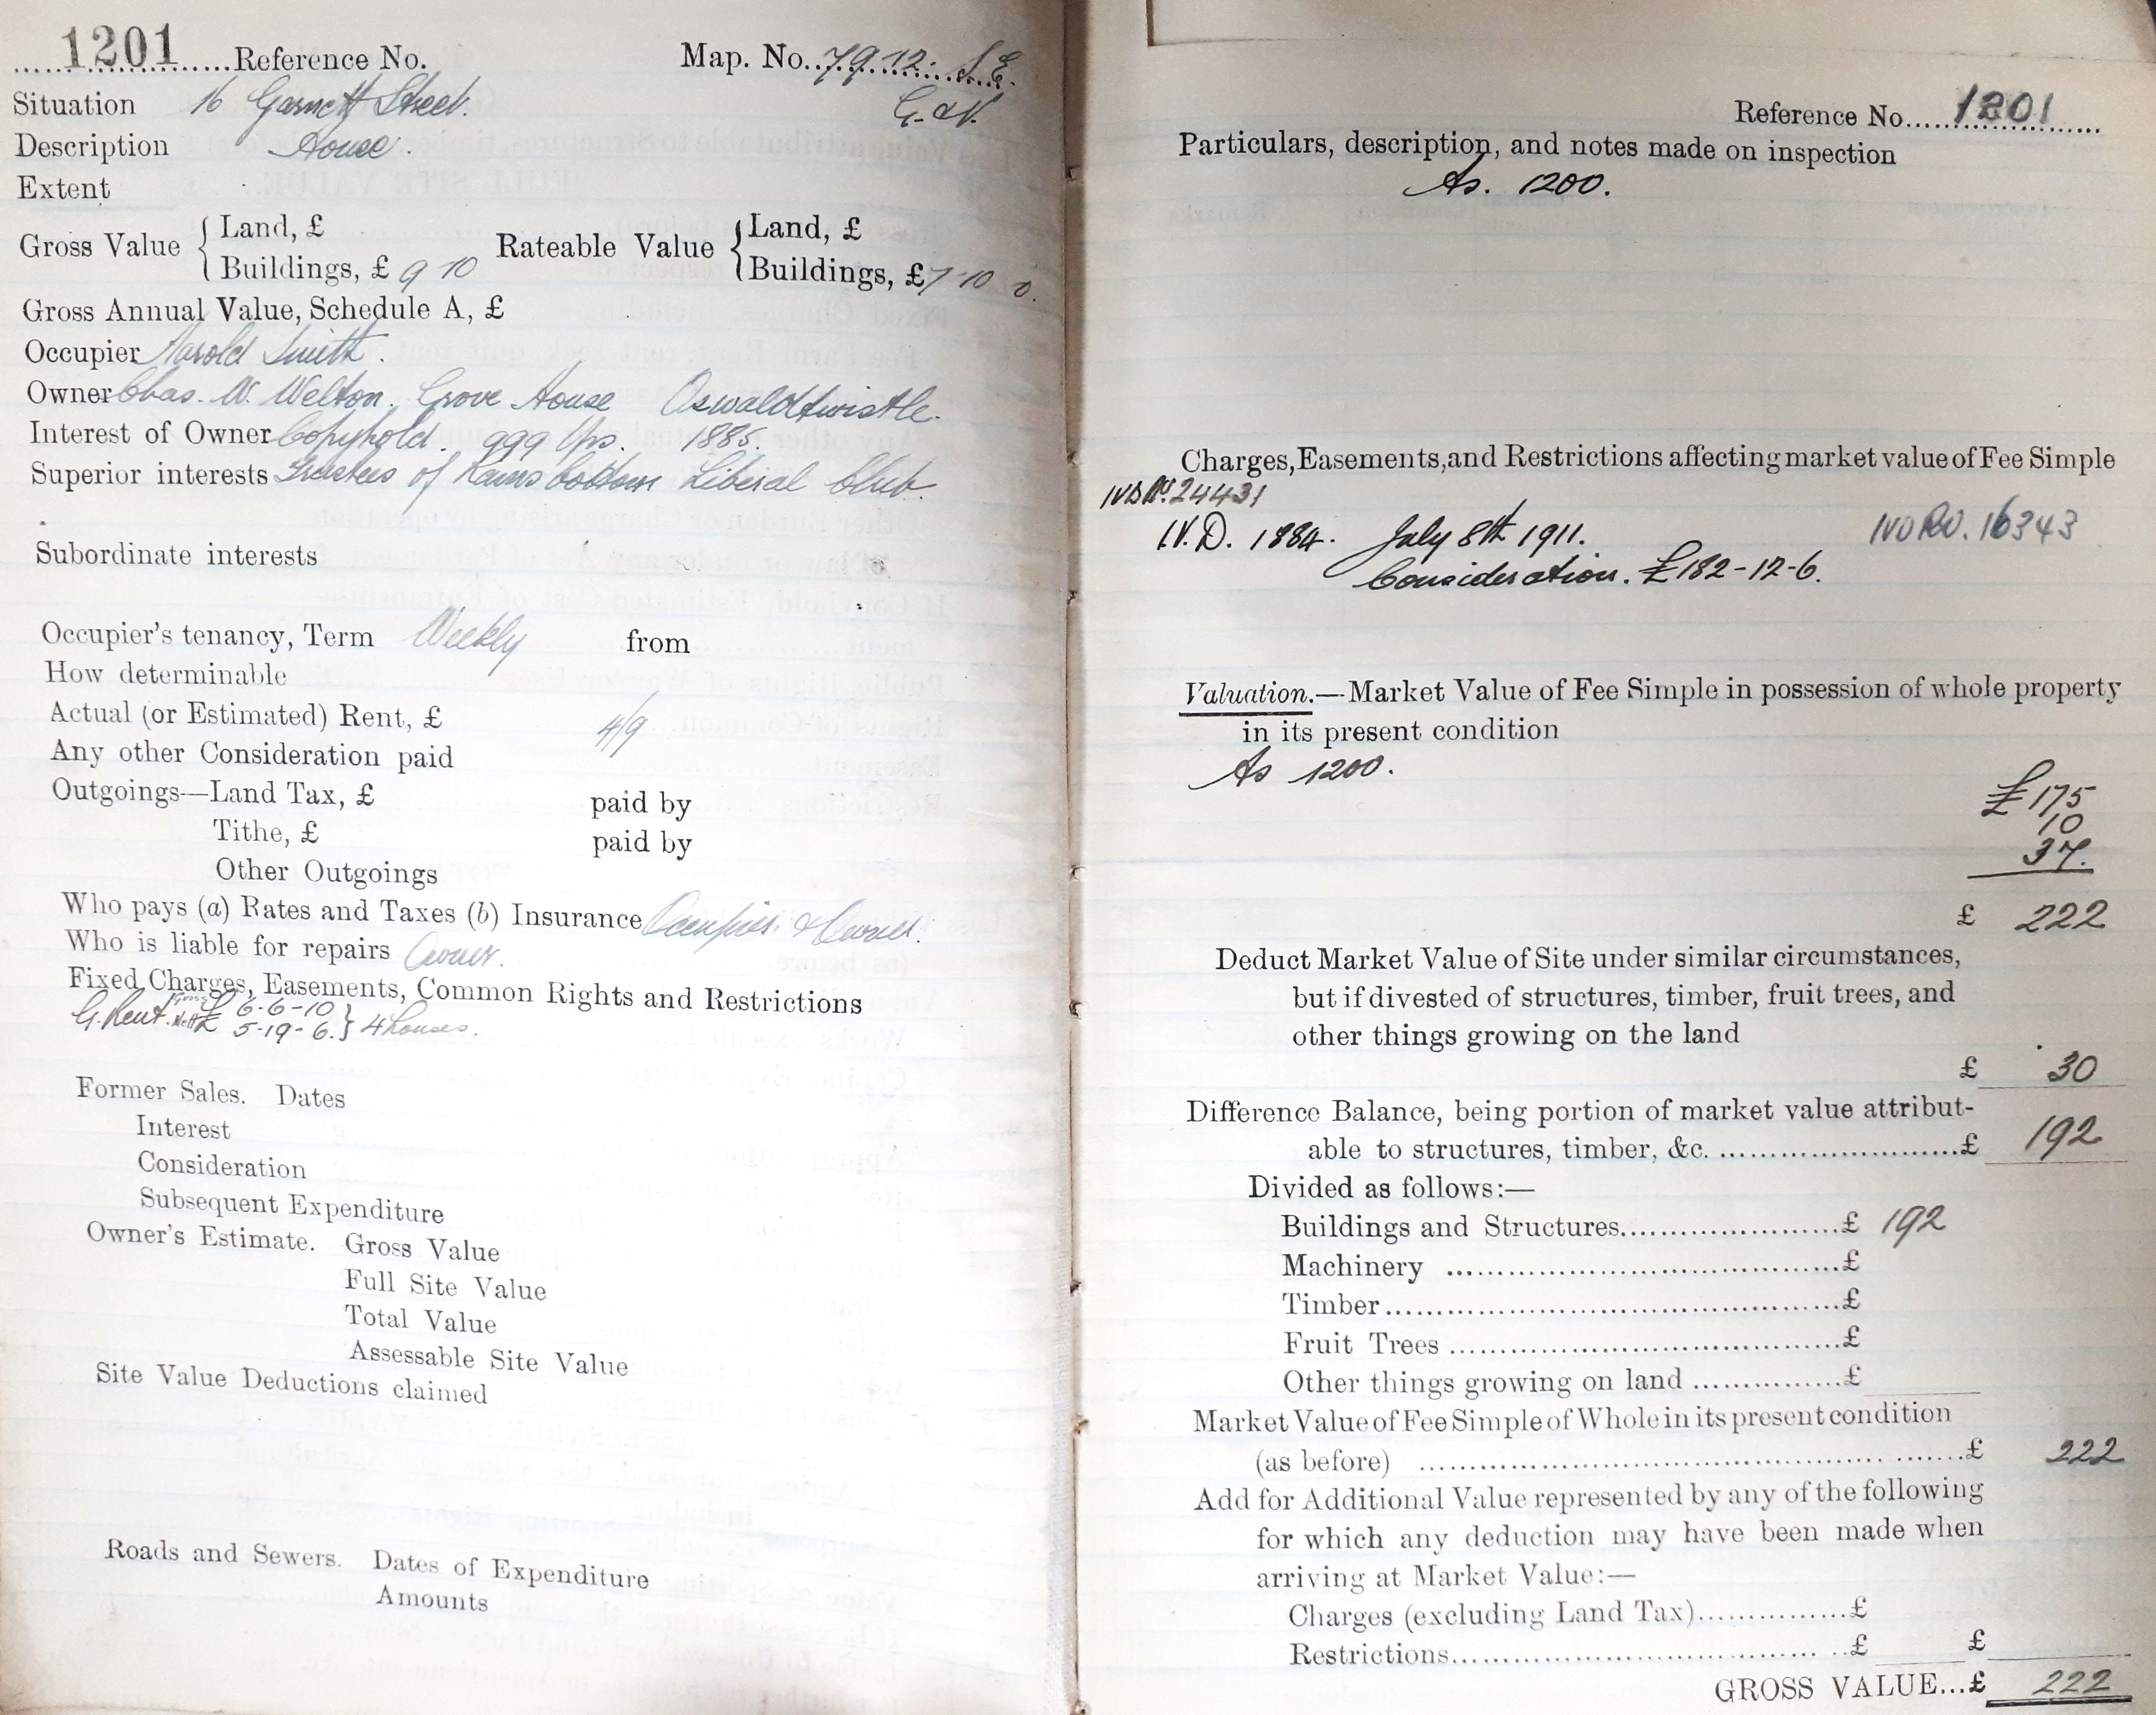 1201 Reference No. Map. No. 79.12. S.E.
Situation 16 Garnett Street. G. & V.
Description House.
Extent
Gross Value { Land, £ Rateable Value { Land, £
Buildings, £ 9 10 Buildings, £ 7 10 0.
Gross Annual Value, Schedule A, £
Occupier Harold Smith.
Owner Chas. W. Welton. Grove House Oswaldtwistle.
Interest of Owner Copyhold. 999 Yrs. 1885.
Superior interests Trustees of Ramsbottom Liberal Club.
Subordinate interests
Occupier's tenancy, Term Weekly from
How determinable
Actual (or Estimated) Rent, £ 4/9
Any other Consideration paid
Outgoings—Land Tax, £ paid by
Tithe, £ paid by
Other Outgoings
Who pays (a) Rates and Taxes (b) Insurance Occupier. & Owner.
Who is liable for repairs Owner.
Fixed Charges, Easements, Common Rights and Restrictions
G. Rent. Gross £ 6-6-10 }
Nett £ 5-19-6. } 4 houses.
Former Sales. Dates
Interest
Consideration
Subsequent Expenditure
Owner's Estimate. Gross Value
Full Site Value
Total Value
Assessable Site Value
Site Value Deductions claimed
Roads and Sewers. Dates of Expenditure
Amounts
Reference No. 1201
Particulars, description, and notes made on inspection
As. 1200.
Charges, Easements, and Restrictions affecting market value of Fee Simple
24431
I.V.D. 1884. July 8th 1911. 16343
Consideration. £182-12-6.
Valuation.—Market Value of Fee Simple in possession of whole property
in its present condition
As 1200.
£175
10
37.
£ 222
Deduct Market Value of Site under similar circumstances,
but if divested of structures, timber, fruit trees, and
other things growing on the land
£ 30
Difference Balance, being portion of market value attribut-
able to structures, timber, &c. £ 192
Divided as follows:—
Buildings and Structures £ 192
Machinery £
Timber £
Fruit Trees £
Other things growing on land £
Market Value of Fee Simple of Whole in its present condition
(as before) £ 222
Add for Additional Value represented by any of the following
for which any deduction may have been made when
arriving at Market Value:—
Charges (excluding Land Tax) £
Restrictions £ £
GROSS VALUE...£ 222